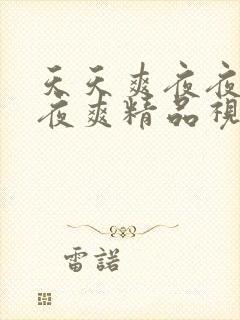 天天爽夜夜
夜爽精品視
雷諾